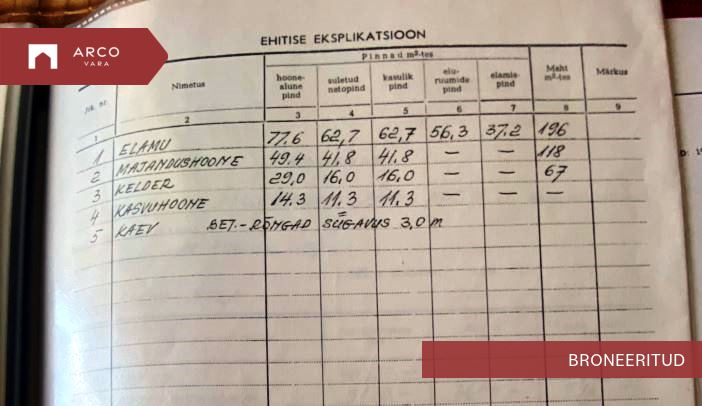 EHITISE EKSPLIKATSIOON
ARCO
VARA
Jrk. nr. Nimetus Pinnad m²-tes Maht m²-tes Märkus
hoone-alune pind suletud netopind kasulik pind elu-ruumide pind elamis-pind
1 2 3 4 5 6 7 8 9
1 ELAMU 77.6 62,7 62,7 56,3 37.2 196
2 MAJANDUSHOONE 49.4 41,8 41.8 — — 118
3 KELDER 29,0 16,0 16,0 — — 67
4 KASVUHOONE 14.3 11.3 11.3 — — —
5 KAEV BET.-RÕNGAD SÜGAVUS 3,0 m
BRONEERITUD